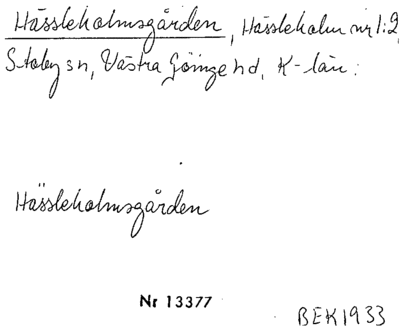 Hässleholmsgården, Hässleholm nr 1:2,
Stoby sn, Västra Göinge hd, K-län.
Hässleholmsgården
Nr 13377
BEK1933